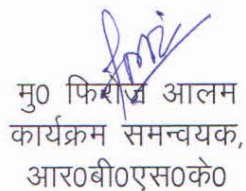 मु0 फिरोज आलम
कार्यक्रम समन्वयक,
आर0बी0एस0के0